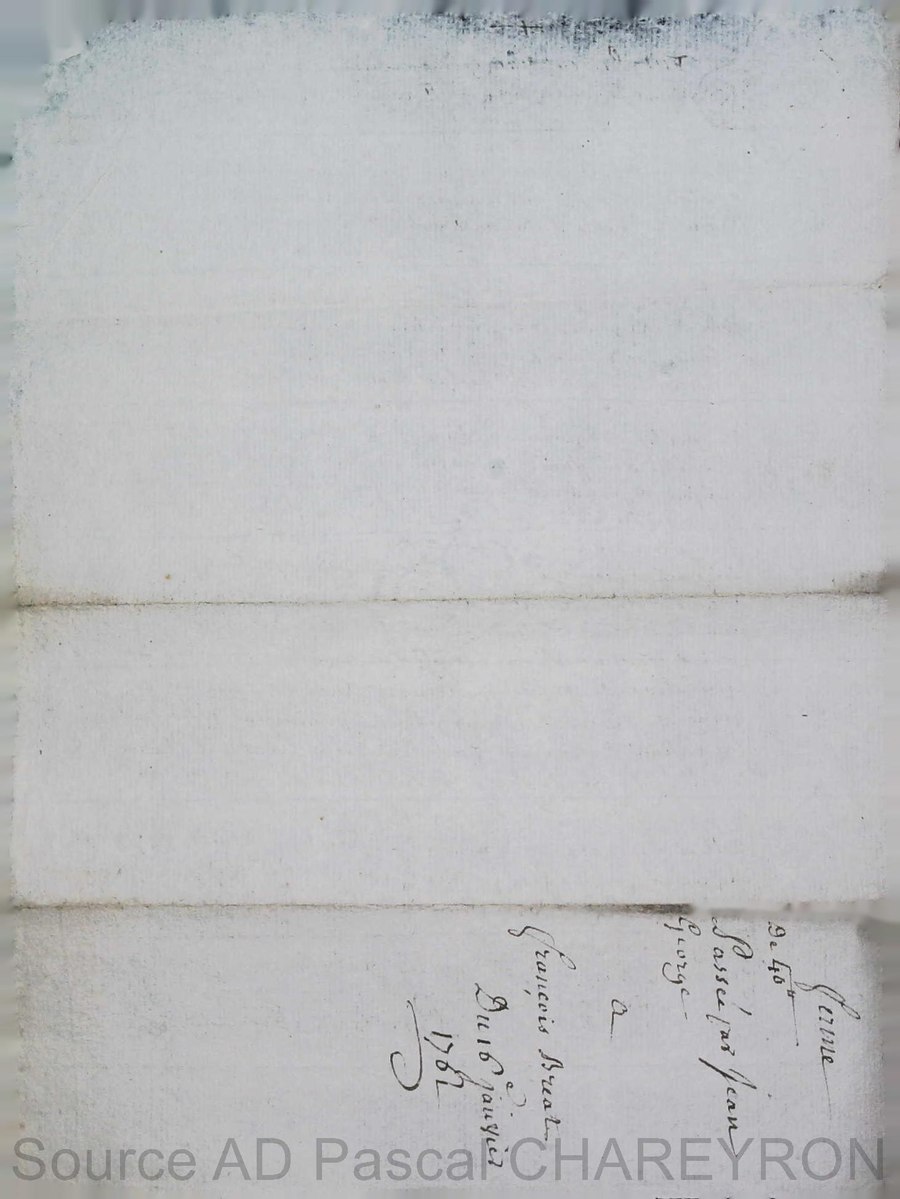 ferme
De 40 ₶
Passée par Jean
George
a
françois Breat
Du 16 Janvier
1762
Source AD Pascal CHAREYRON